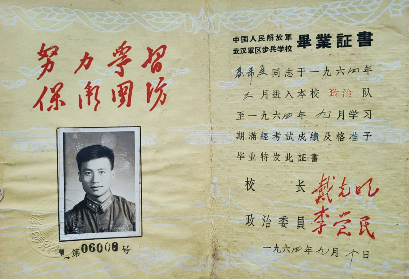 努力學習
保衛國防
第06008号
中国人民解放軍
武汉軍区步兵学校
畢業証書
同志于一九六四年
月进入本校政治队
至一九六四年九月学习
期滿經考試成績及格准予
毕业特发此証書
校長
政治委員 李荣民
一九六四年九月十日